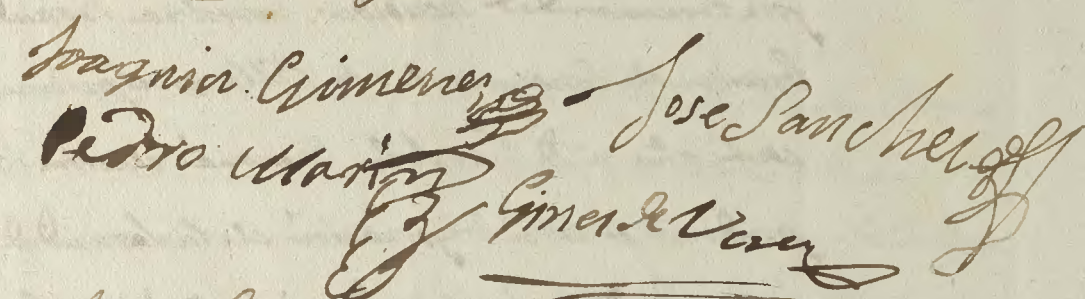 Joaquin Gimenez
Jose Sanchez
Pedro Marin
Gines de Vera